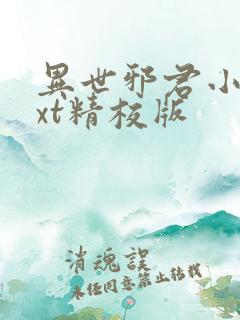 異世邪君小
xt精校版
消魂誤
未任同意禁止转载